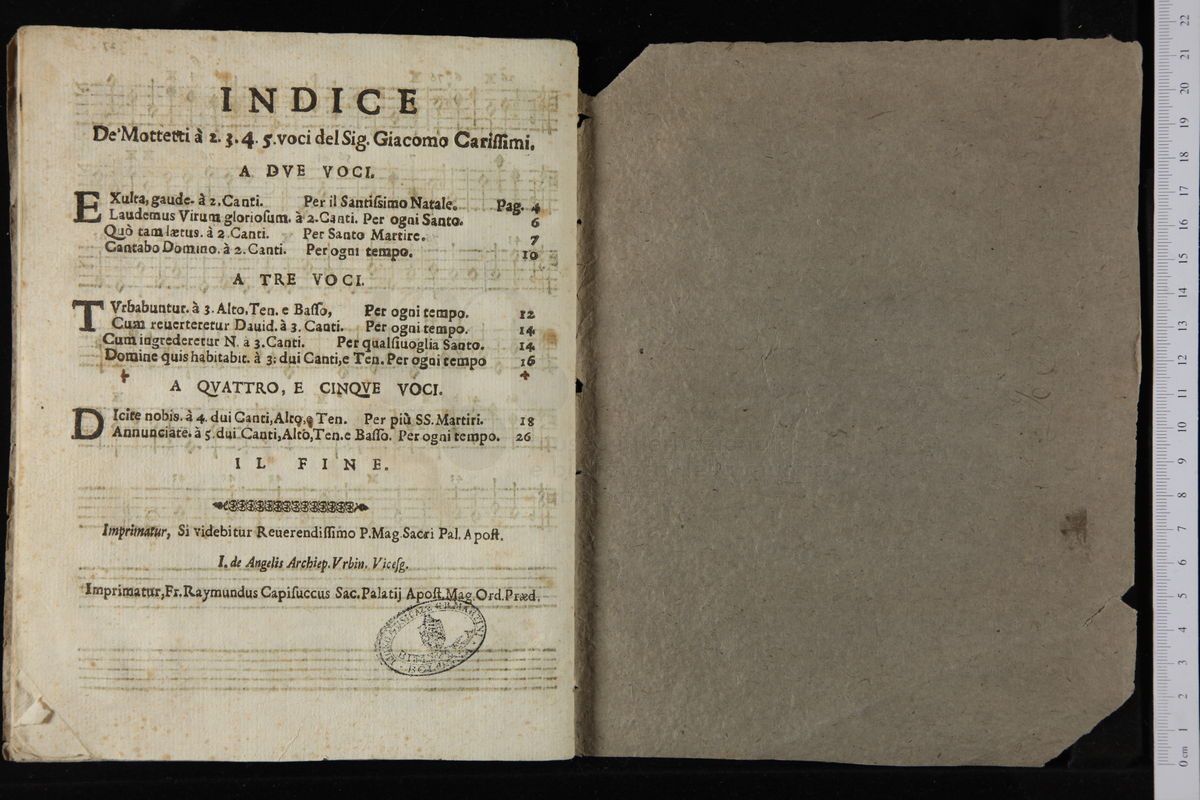 INDICE
De'Mottetti à 2. 3. 4. 5. voci del Sig. Giacomo Carissimi.
A DVE VOCI.
EXulta, gaude. à 2. Canti. Per il Santissimo Natale. Pag. 4
Laudemus Virum gloriosum. à 2. Canti. Per ogni Santo. 6
Quò tam lætus. à 2 Canti. Per Santo Martire. 7
Cantabo Domino. à 2. Canti. Per ogni tempo. 10
A TRE VOCI.
TVrbabuntur. à 3. Alto, Ten. e Basso, Per ogni tempo. 12
Cum reuerteretur Dauid. à 3. Canti. Per ogni tempo. 14
Cum ingrederetur N. à 3. Canti. Per qualsiuoglia Santo. 14
Domine quis habitabit. à 3: dui Canti, e Ten. Per ogni tempo 16
A QVATTRO, E CINQVE VOCI.
DIcite nobis. à 4. dui Canti, Alto, e Ten. Per più SS. Martiri. 18
Annunciate. à 5. dui Canti, Alto, Ten. e Basso. Per ogni tempo. 26
IL FINE.
Imprimatur, Si videbitur Reuerendissimo P. Mag. Sacri Pal. Apost.
I. de Angelis Archiep. Vrbin. Vicesg.
Imprimatur, Fr. Raymundus Capisuccus Sac. Palatij Apost. Mag. Ord. Præd.